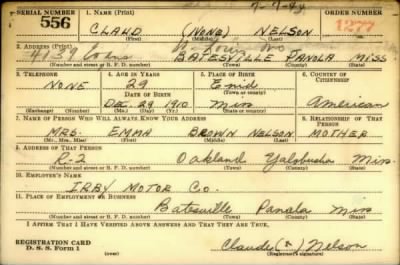 7-7-44
SERIAL NUMBER 1. NAME (Print) ORDER NUMBER
556 CLAUD (NONE) NELSON 1277
(First) (Middle) (Last)
2. ADDRESS (Print)
St. Louis Mo
4139 BATESVILLE PANOLA MISS
(Number and street or R. F. D. number) (Town) (County) (State)
3. TELEPHONE 4. AGE IN YEARS 5. PLACE OF BIRTH 6. COUNTRY OF CITIZENSHIP
NONE 29 Enid
DATE OF BIRTH (Town or county)
DEC. 29 1910 Miss American
(Exchange) (Number) (Mo.) (Day) (Yr.) (State or country)
7. NAME OF PERSON WHO WILL ALWAYS KNOW YOUR ADDRESS 8. RELATIONSHIP OF THAT PERSON
MRS. EMMA BROWN NELSON MOTHER
(Mr., Mrs., Miss) (First) (Middle) (Last)
9. ADDRESS OF THAT PERSON
R-2 Oakland Yalobusha Miss.
(Number and street or R. F. D. number) (Town) (County) (State)
10. EMPLOYER'S NAME
IRBY MOTOR CO.
11. PLACE OF EMPLOYMENT OR BUSINESS
Batesville Panola Miss
(Number and street or R. F. D. number) (Town) (County) (State)
I AFFIRM THAT I HAVE VERIFIED ABOVE ANSWERS AND THAT THEY ARE TRUE.
REGISTRATION CARD
D. S. S. Form 1 Claude (x) Nelson
(Registrant's signature)